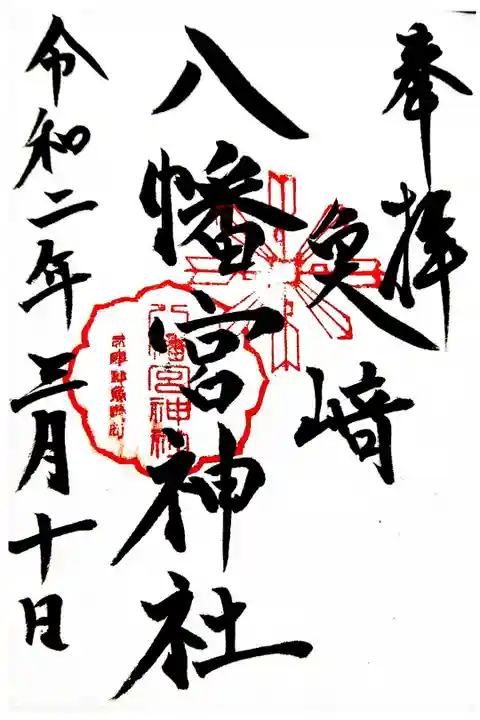 奉拝
魚﨑
八幡宮神社
令和二年三月十日
八幡宮神社